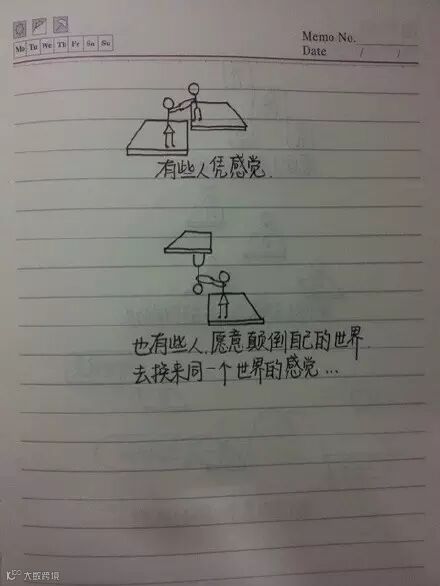 Memo No.
Mo Tu We Th Fr Sa Su
Date / /
有些人凭感觉.
也有些人.愿意颠倒自己的世界.
去换来同一个世界的感觉...
大数跨境